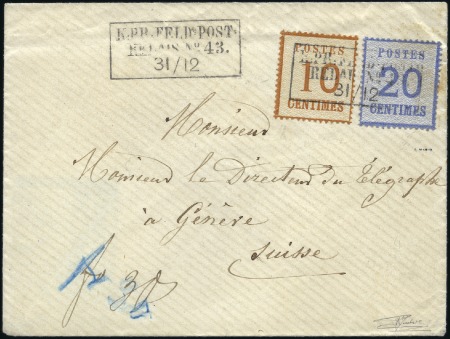 K.PR.FELD-POST-
RELAIS No. 43.
31/12
POSTES
10
CENTIMES
POSTES
20
CENTIMES
K.PR.FELD-POST
RELAIS No
31/12
Monsieur
Monsieur le Directeur du Télégraphe
à Génève
Suisse
30